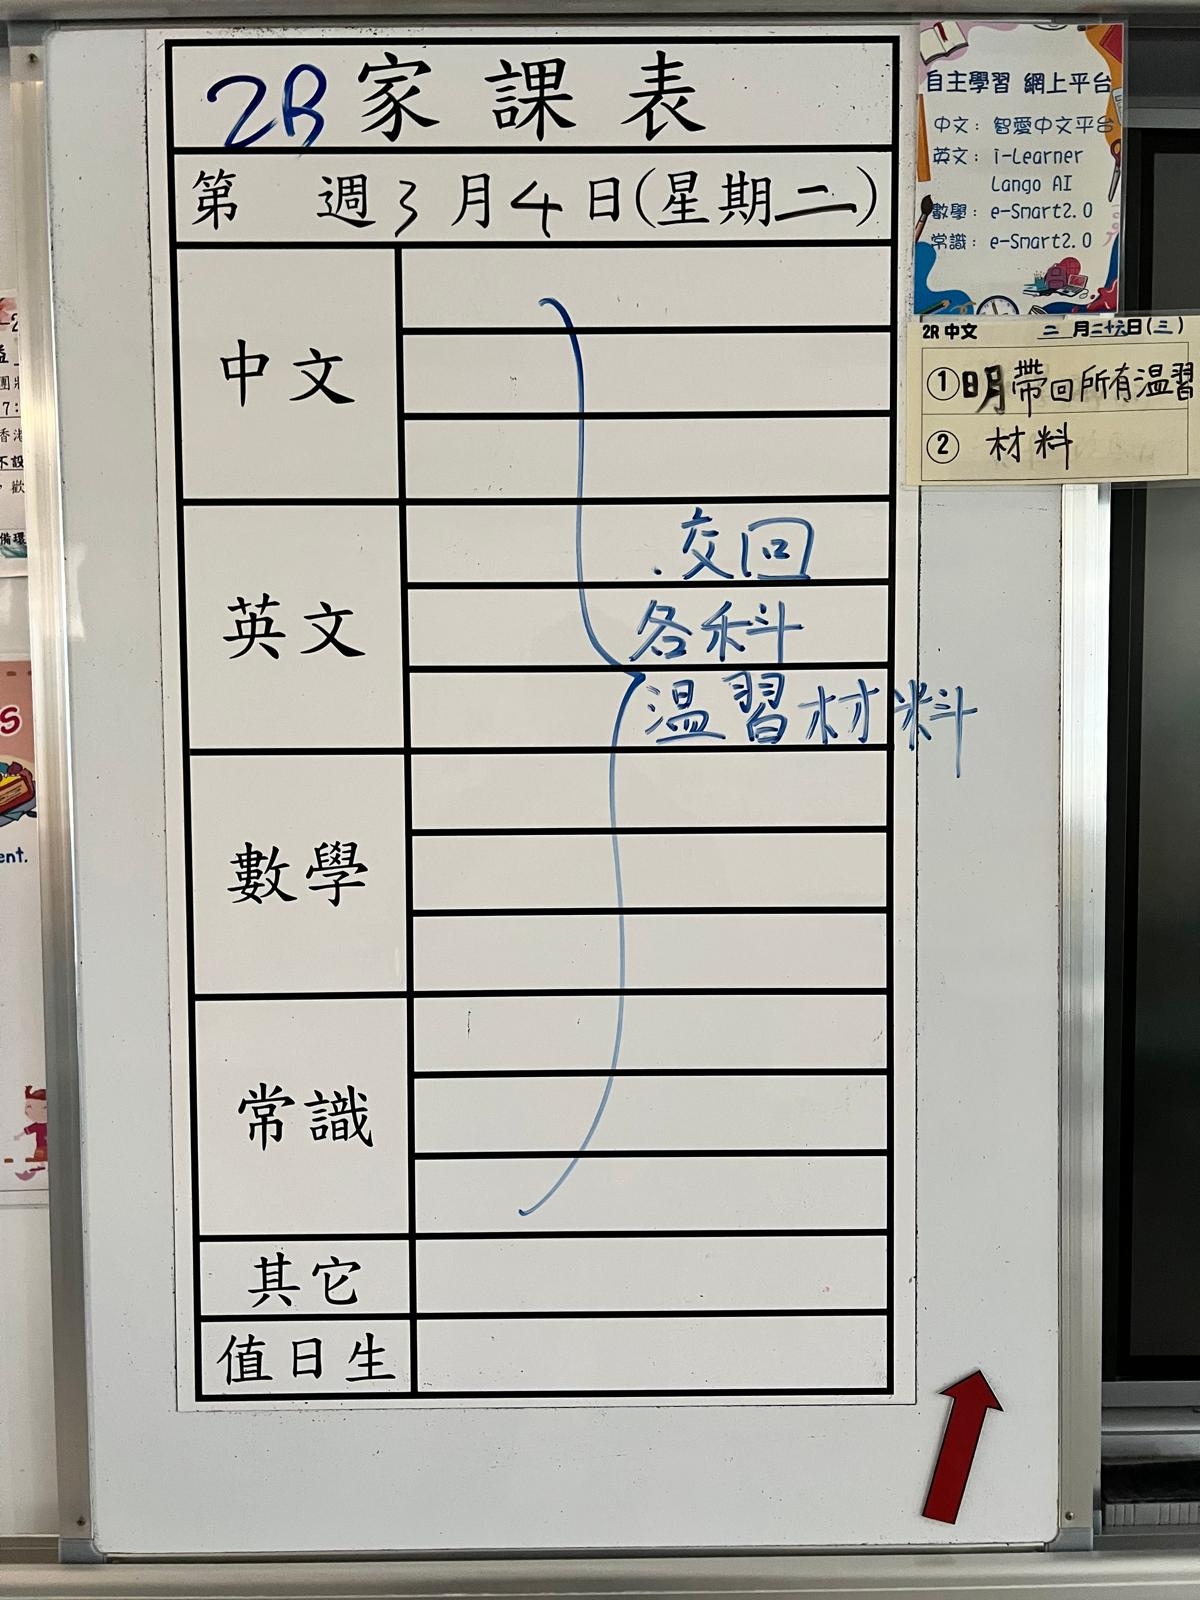 2B家課表
第 週3月4日(星期二)
中文
英文
交回
各科
温習材料
數學
常識
其它
值日生
自主學習 網上平台
中文：智愛中文平台
英文：i-Learner
Lango AI
數學：e-Smart2.0
常識：e-Smart2.0
2R 中文 二月二十六日(三)
①明帶回所有温習
② 材料
ent.